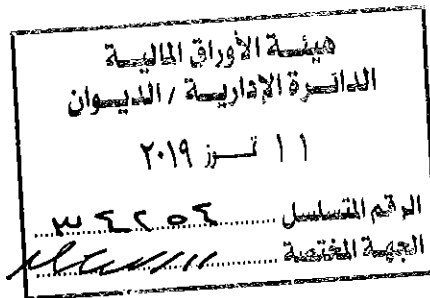 هيئة الأوراق المالية
الدائرة الإدارية / الديوان
١١ تموز ٢٠١٩
الرقم المتسلسل ٣٤٢٥٤
الجهة المختصة